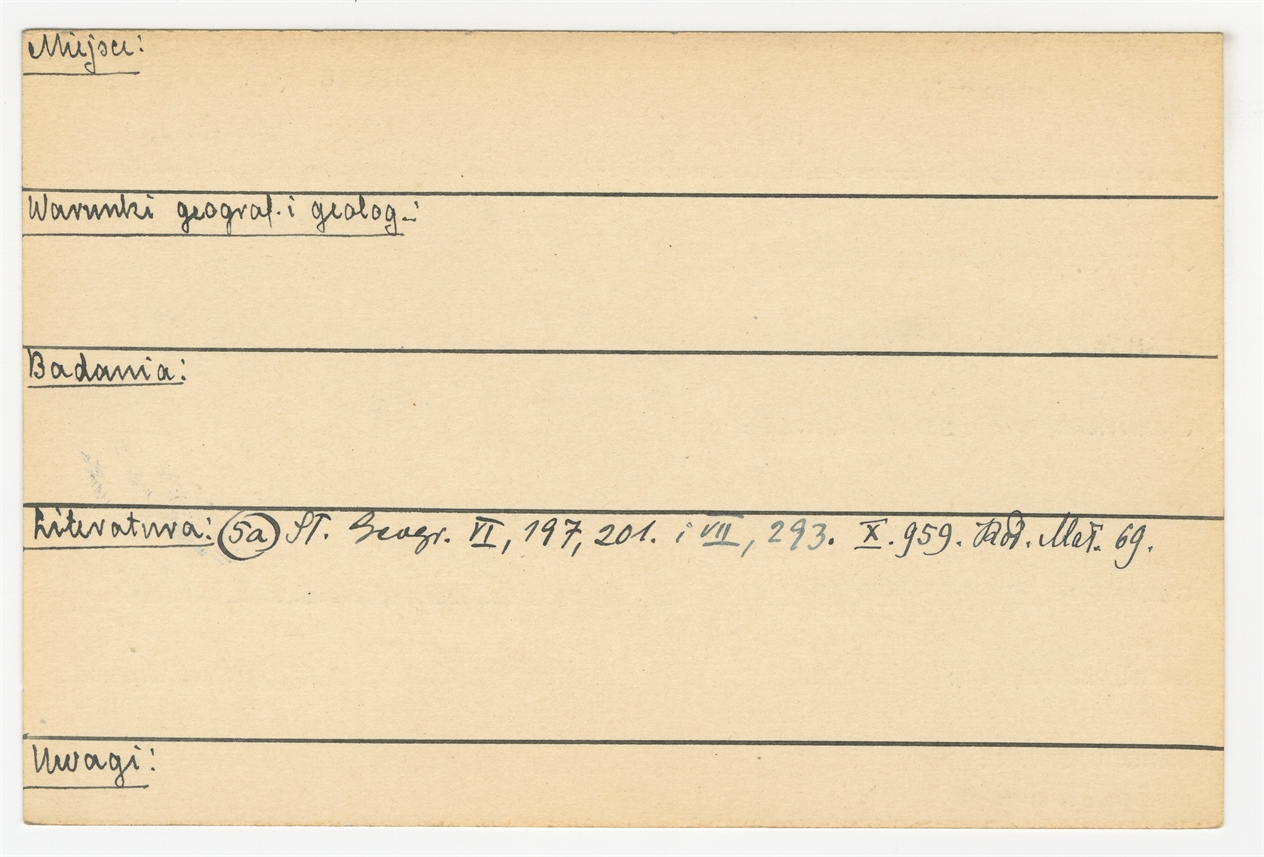 Miejsce:
Warunki geograf. i geolog.:
Badania:
Literatura: 5a Sł. Geogr. VI, 197, 201. i VII, 293. X. 959. Mat. 69.
Uwagi: